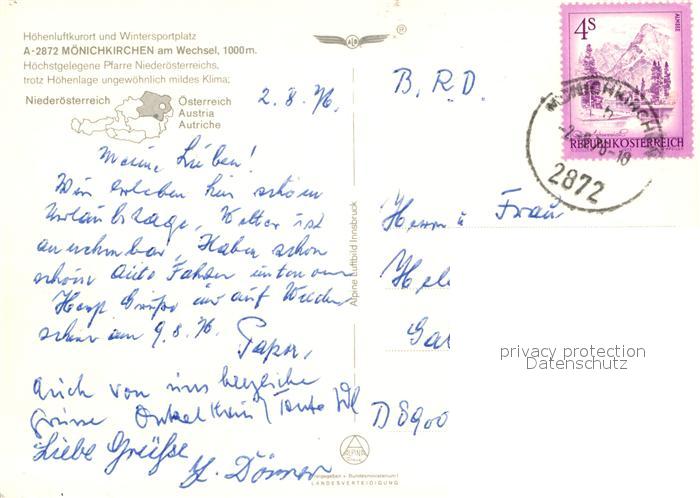 Höhenluftkurort und Wintersportplatz
A-2872 MÖNICHKIRCHEN am Wechsel, 1000m.
Höchstgelegene Pfarre Niederösterreichs,
trotz Höhenlage ungewöhnlich mildes Klima;
Niederösterreich
Österreich
Austria
Autriche
2.8.76.
Meine Lieben!
Wir erleben hier schöne
Urlaubstage, Wetter ist
annehmbar, Haben schon
schöne Auto Fahrten unternom
Herzl Grüße und auf Wieder
sehen am 9.8.76.
Papa,
Auch von uns herzliche
Grüsse Onkel Tante
Liebe Grüße
Alpine Luftbild Innsbruck
ALPINE
Freigegeben v. Bundesministerium f.
LANDESVERTEIDIGUNG
B.R.D.
Herrn u Frau
D 8900
4S
ALMSEE
REPUBLIK ÖSTERREICH
MÖNICHKIRCHEN
2872
privacy protection
Datenschutz